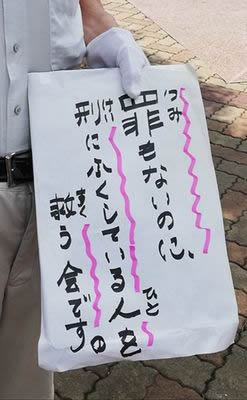 罪もないのに、
刑にふくしている人を
救う会です
の
つみ
けい
ひと
すく